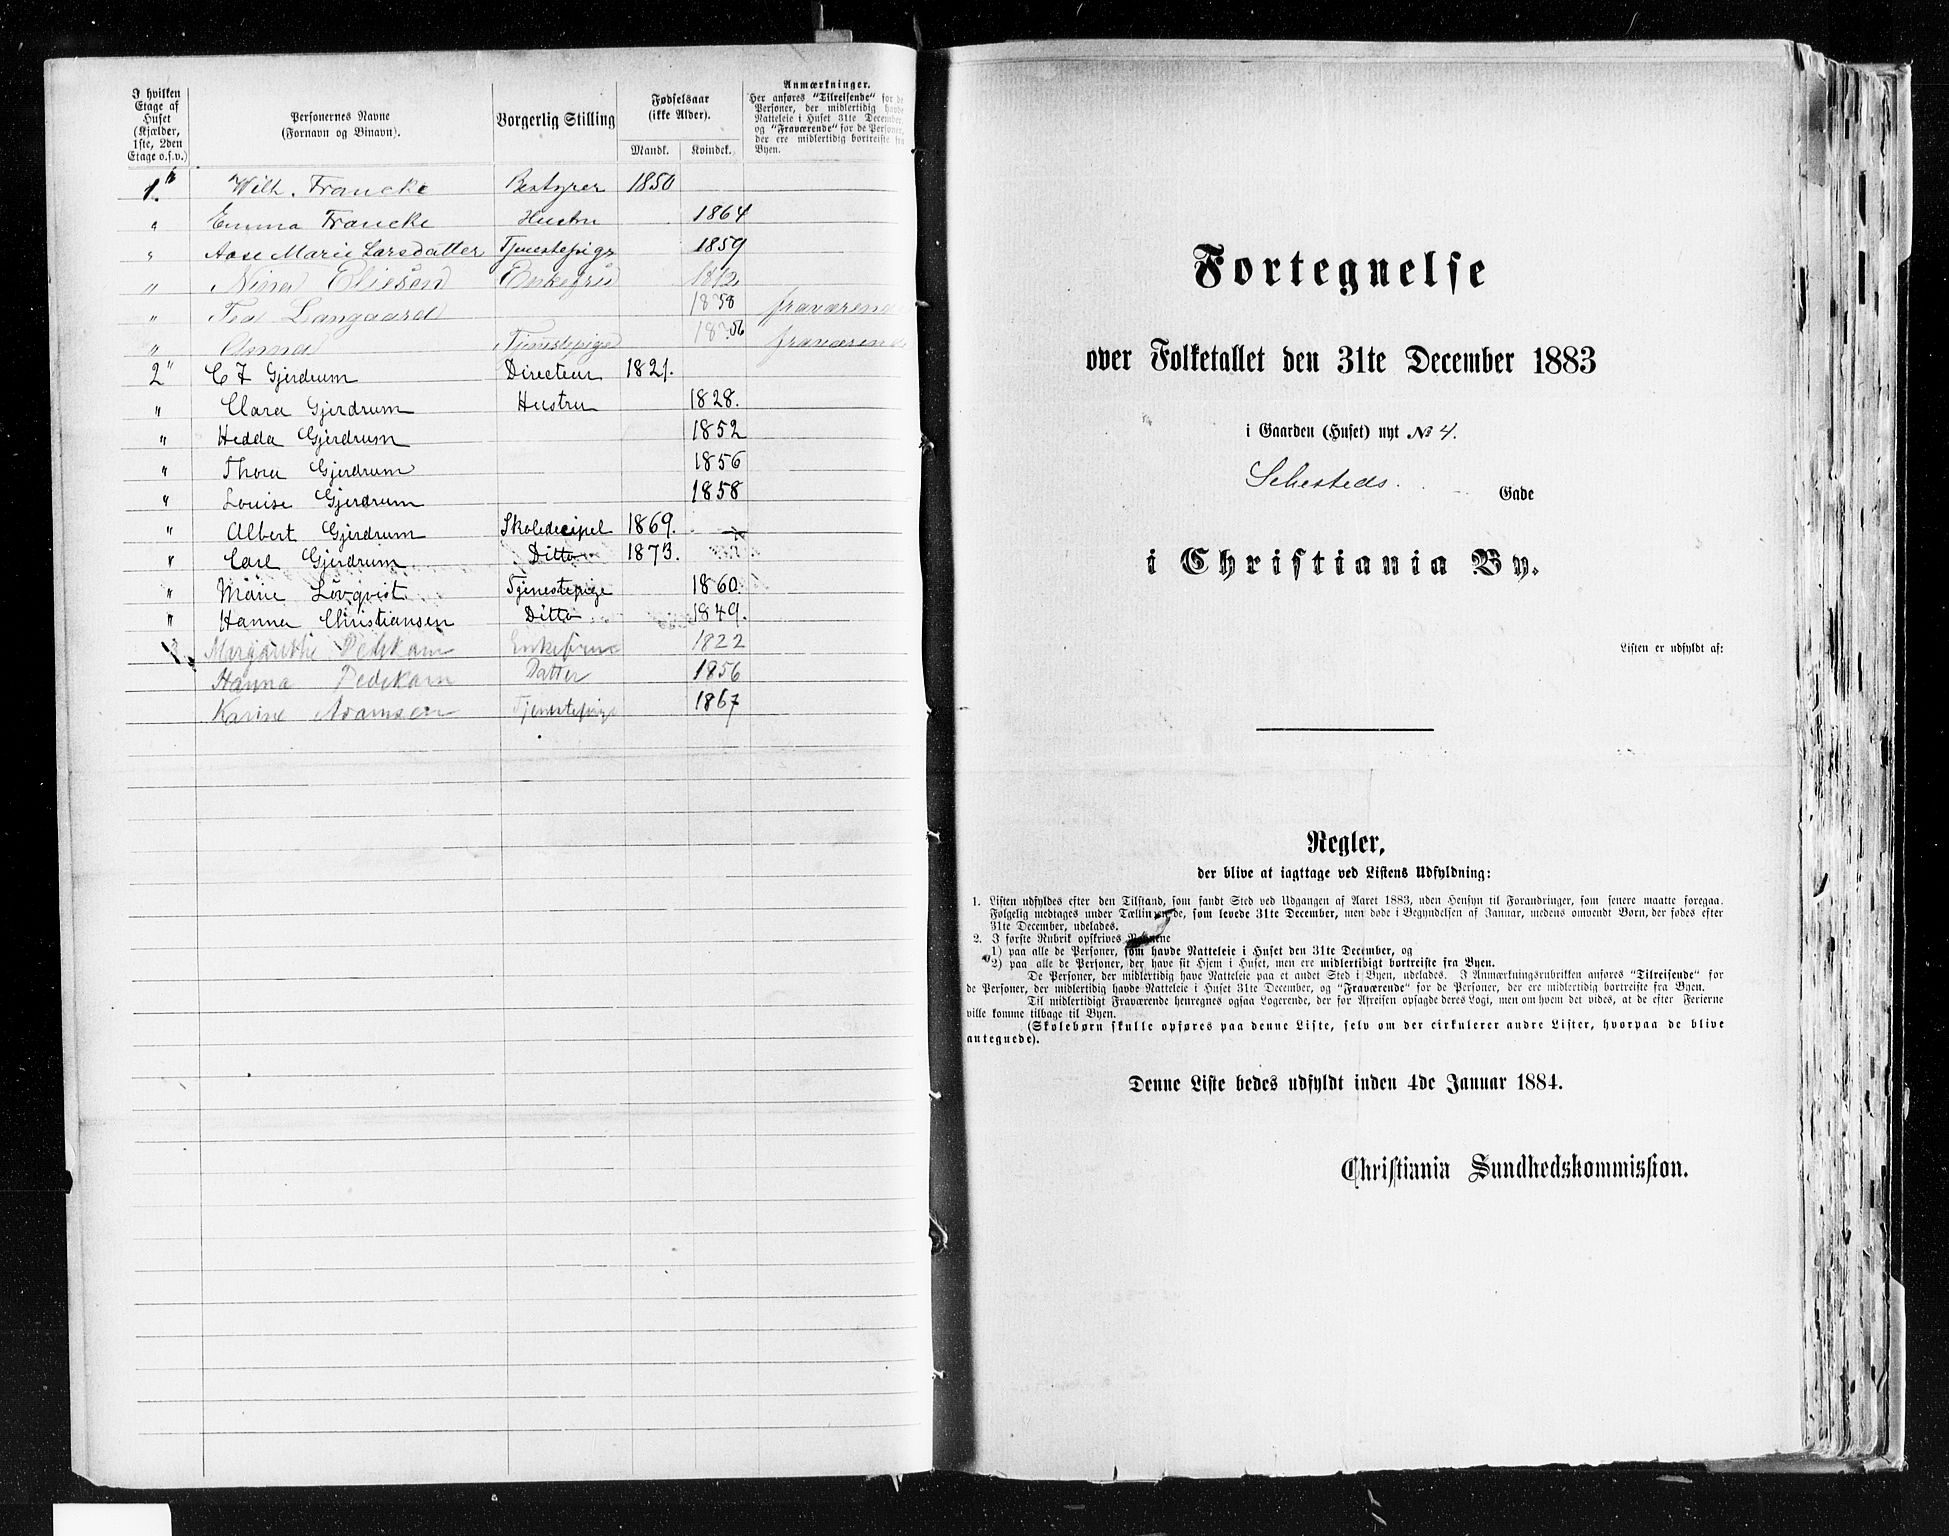 I hvilken Etage af Huset (Kjælder, 1ste, 2den Etage o.s.v.) | Personernes Navne (Fornavn og Binavn). | Borgerlig Stilling | Fødselsaar (ikke Alder). Mandk. | Kvindek. | Anmærkninger. Her anføres "Tilreisende" for de Personer, der midlertidig havde Natteleie i Huset 31te December, og "Fraværende" for de Personer, der ere midlertidig bortreiste fra Byen.
1" Wilh. Francke Bestyrer 1850
" Emma Francke Hustru 1864
" Aase Marie Larsdatter Tjenestepige 1859
" Nina Elieson Enkefru
" Langaard 1858 fraværende
" Anna Tjenestepige fraværende
2" C J Gjerdrum Directeur 1821.
" Clara Gjerdrum Hustru 1828.
" Hedda Gjerdrum 1852
" Thora Gjerdrum 1856
" Louise Gjerdrum 1858
" Albert Gjerdrum Skoledicipel 1869.
" Carl Gjerdrum Ditto 1873.
" Marie Lövqvist Tjenestepige 1860.
" Hanna Christiansen Ditto 1849.
Margarethe Enkefrue 1822
Hanna Datter 1856
Karine Adamsen Tjenestepige 1867
Fortegnelse
over Folketallet den 31te December 1883
i Gaarden (Huset) nyt No 4.
Sehesteds. Gade
i Christiania By.
Listen er udfyldt af:
Regler,
der blive at iagttage ved Listens Udfyldning:
1. Listen udfyldes efter den Tilstand, som fandt Sted ved Udgangen af Aaret 1883, uden Hensyn til Forandringer, som senere maatte foregaa.
Følgelig medtages under Tællingen de, som levede 31te December, men døde i Begyndelsen af Januar, medens omvendt Børn, der fødes efter
31te December, udelades.
2. I første Rubrik opskrives Navnene
1) paa alle de Personer, som havde Natteleie i Huset den 31te December, og
2) paa alle de Personer, der have sit Hjem i Huset, men ere midlertidigt bortreiste fra Byen.
De Personer, der midlertidig have Natteleie paa et andet Sted i Byen, udelades. I Anmærkningsrubriken anføres "Tilreisende" for
de Personer, der midlertidig havde Natteleie i Huset 31te December, og "Fraværende" for de Personer, der ere midlertidig bortreiste fra Byen.
Til midlertidigt Fraværende henregnes ogsaa Logerende, der før Afreisen opsagde deres Logi, men om hvem det vides, at de efter Ferierne
ville komme tilbage til Byen.
(Skolebørn skulle opføres paa denne Liste, selv om der cirkulerer andre Lister, hvorpaa de blive
antegnede).
Denne Liste bedes udfyldt inden 4de Januar 1884.
Christiania Sundhedskommission.